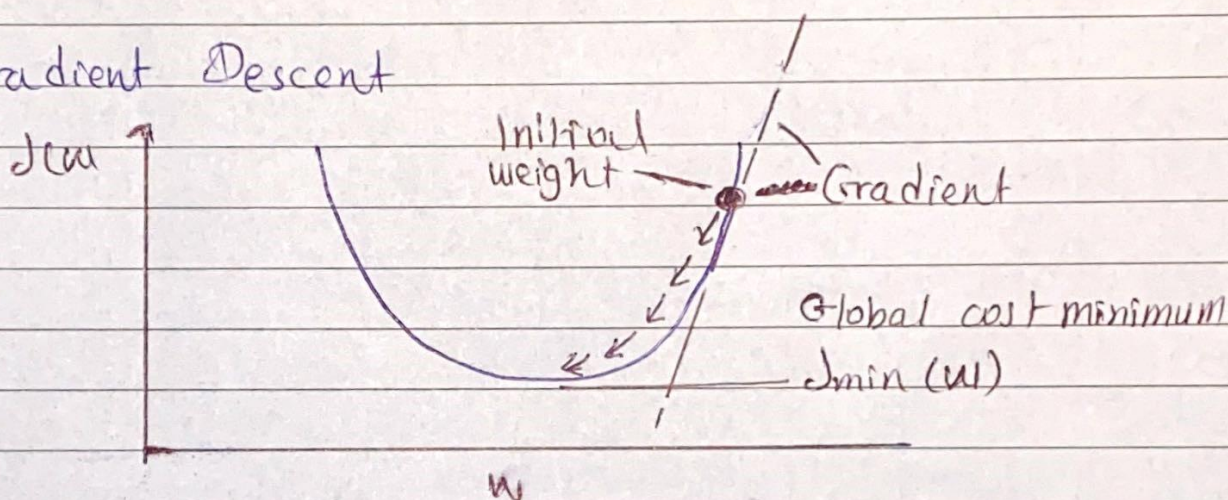 adient Descent
J(w)
Initial
weight
Gradient
Global cost minimum
Jmin (w)
w